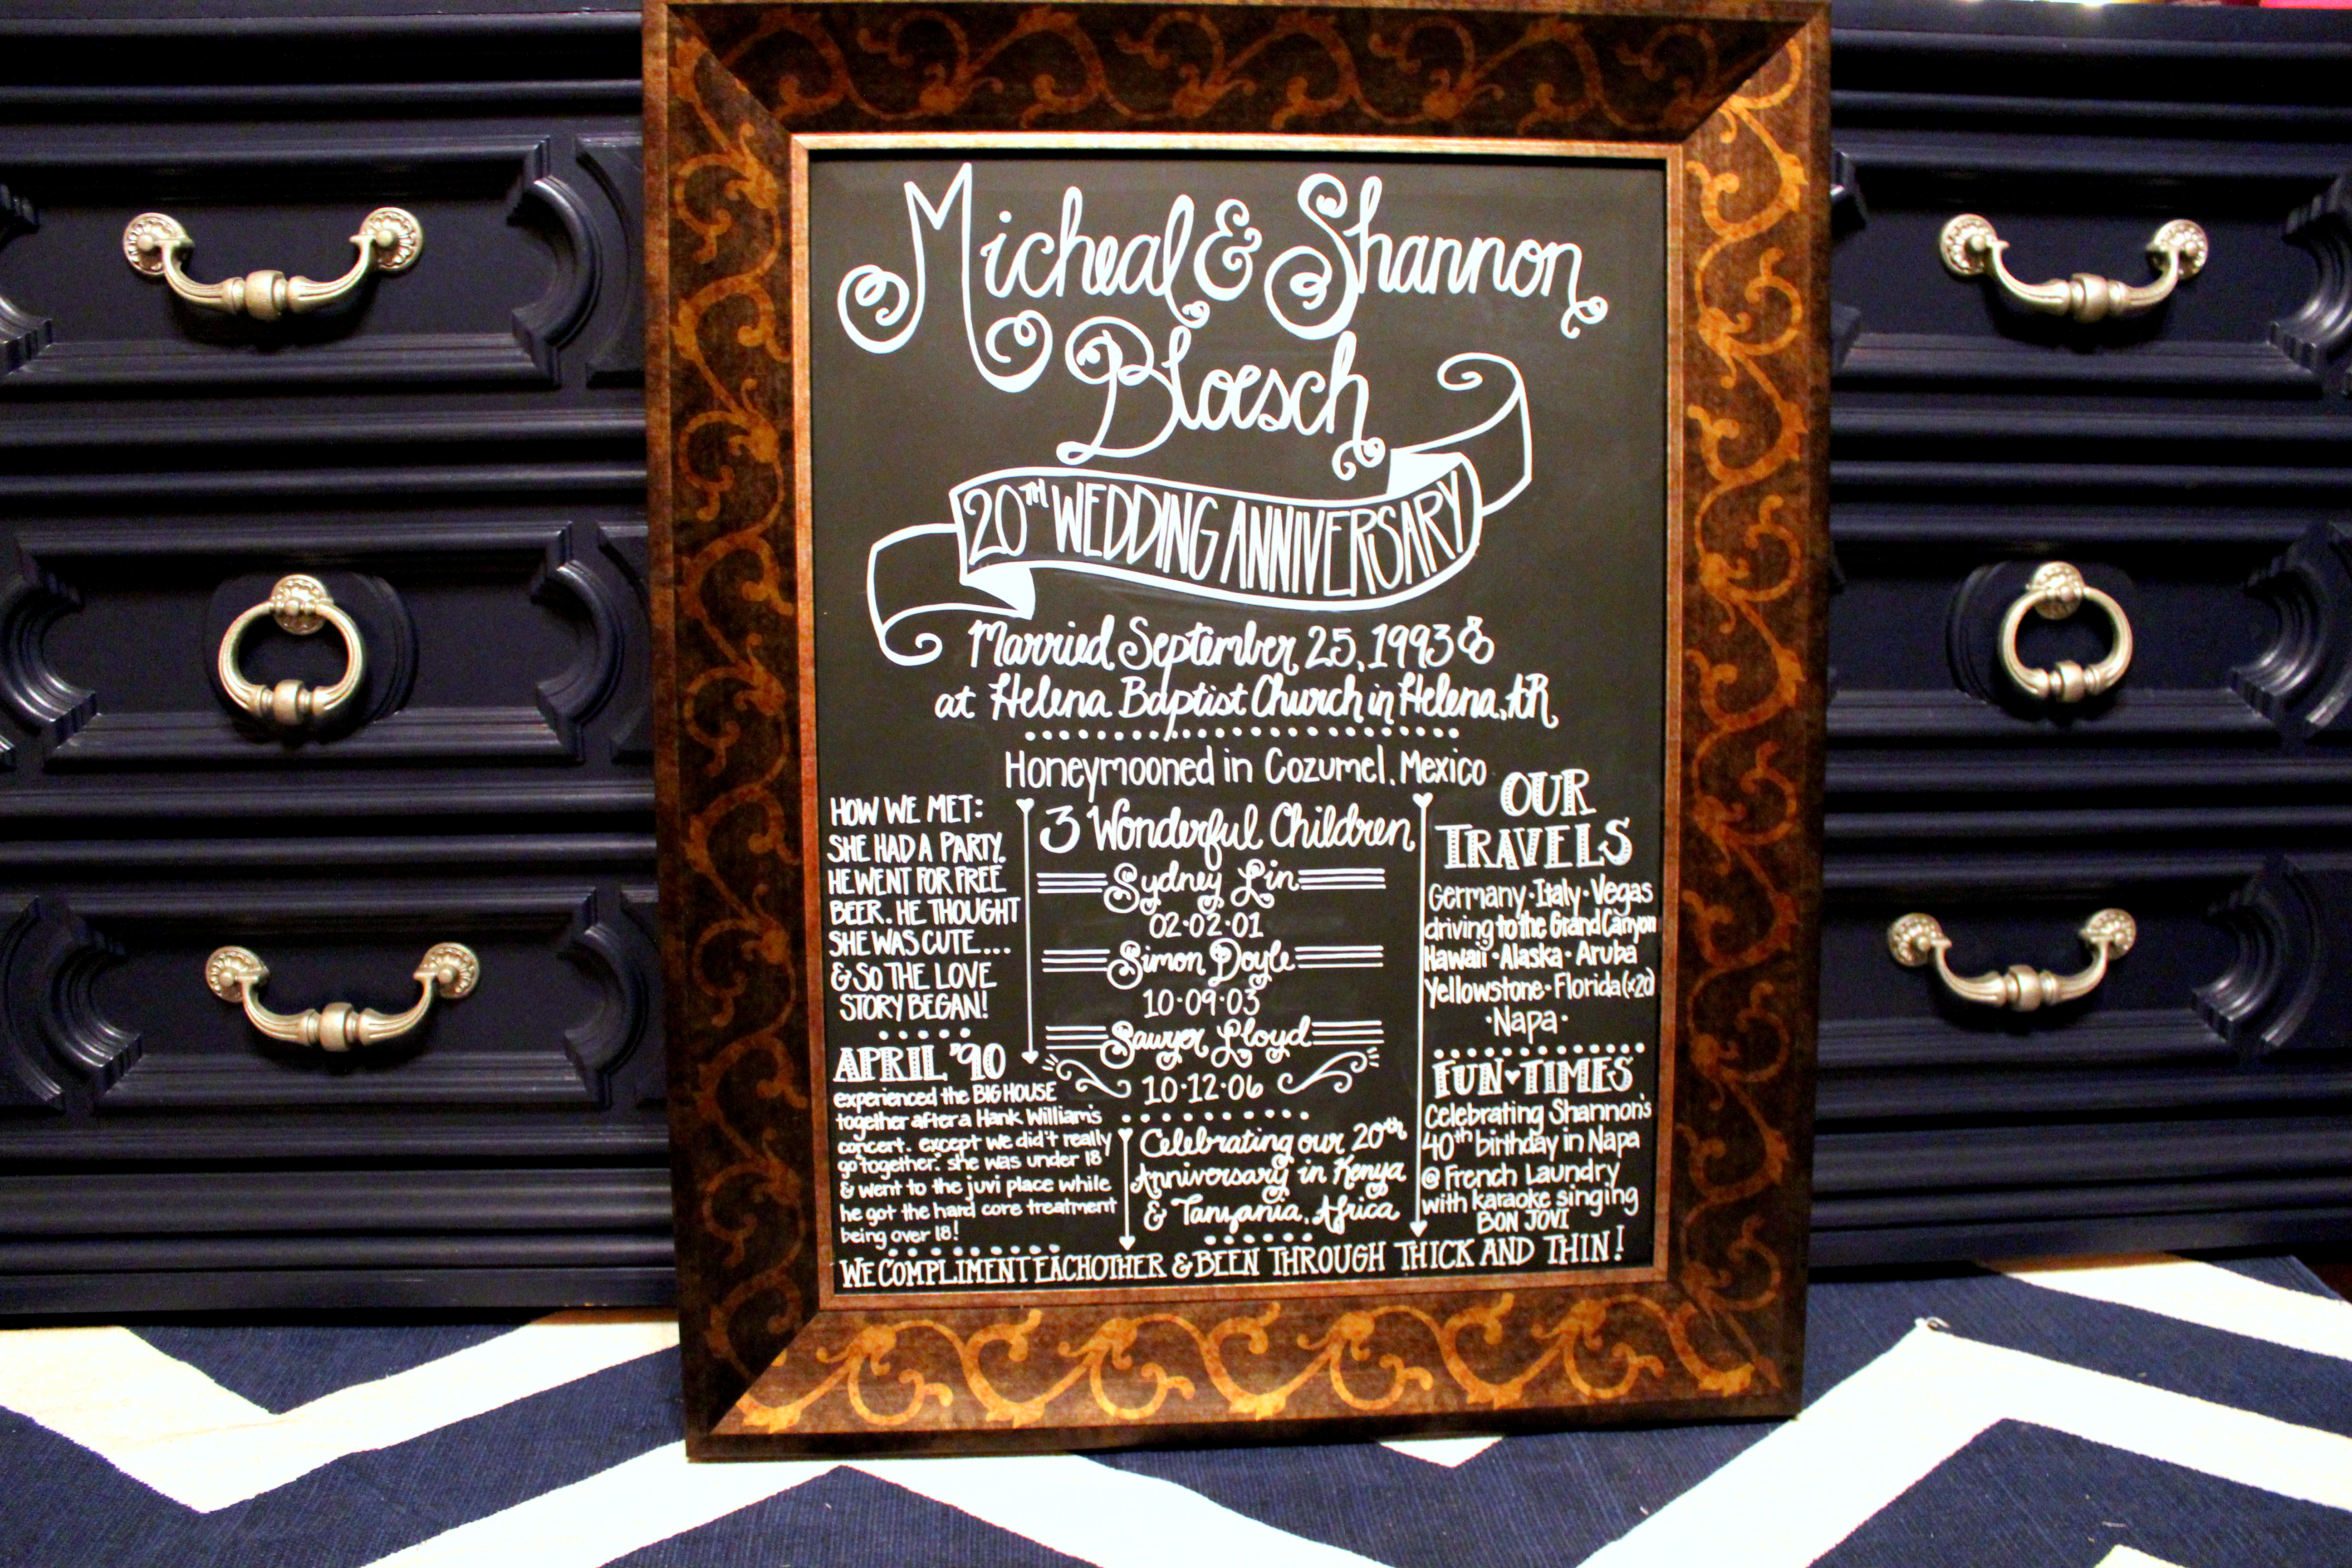 Micheal & Shannon
Bloesch
20TH WEDDING ANNIVERSARY
Married September 25, 1993 &
at Helena Baptist Church in Helena, AR
Honeymooned in Cozumel, Mexico
HOW WE MET:
SHE HAD A PARTY.
HE WENT FOR FREE
BEER. HE THOUGHT
SHE WAS CUTE....
& SO THE LOVE
STORY BEGAN!
APRIL '90
experienced the BIG HOUSE
together after a Hank William's
concert. except we did't really
go together. she was under 18
& went to the juvi place while
he got the hard core treatment
being over 18!
3 Wonderful Children
Sydney Lin
02·02·01
Simon Doyle
10·09·03
Sawyer Lloyd
10·12·06
Celebrating our 20th
Anniversary in Kenya
& Tanzania, Africa
OUR
TRAVELS
Germany·Italy·Vegas
driving to the Grand Canyon
Hawaii·Alaska·Aruba
Yellowstone·Florida(x20)
·Napa·
FUN♥TIMES
Celebrating Shannon's
40th birthday in Napa
@ French Laundry
with karaoke singing
BON JOVI
WE COMPLIMENT EACHOTHER & BEEN THROUGH THICK AND THIN!